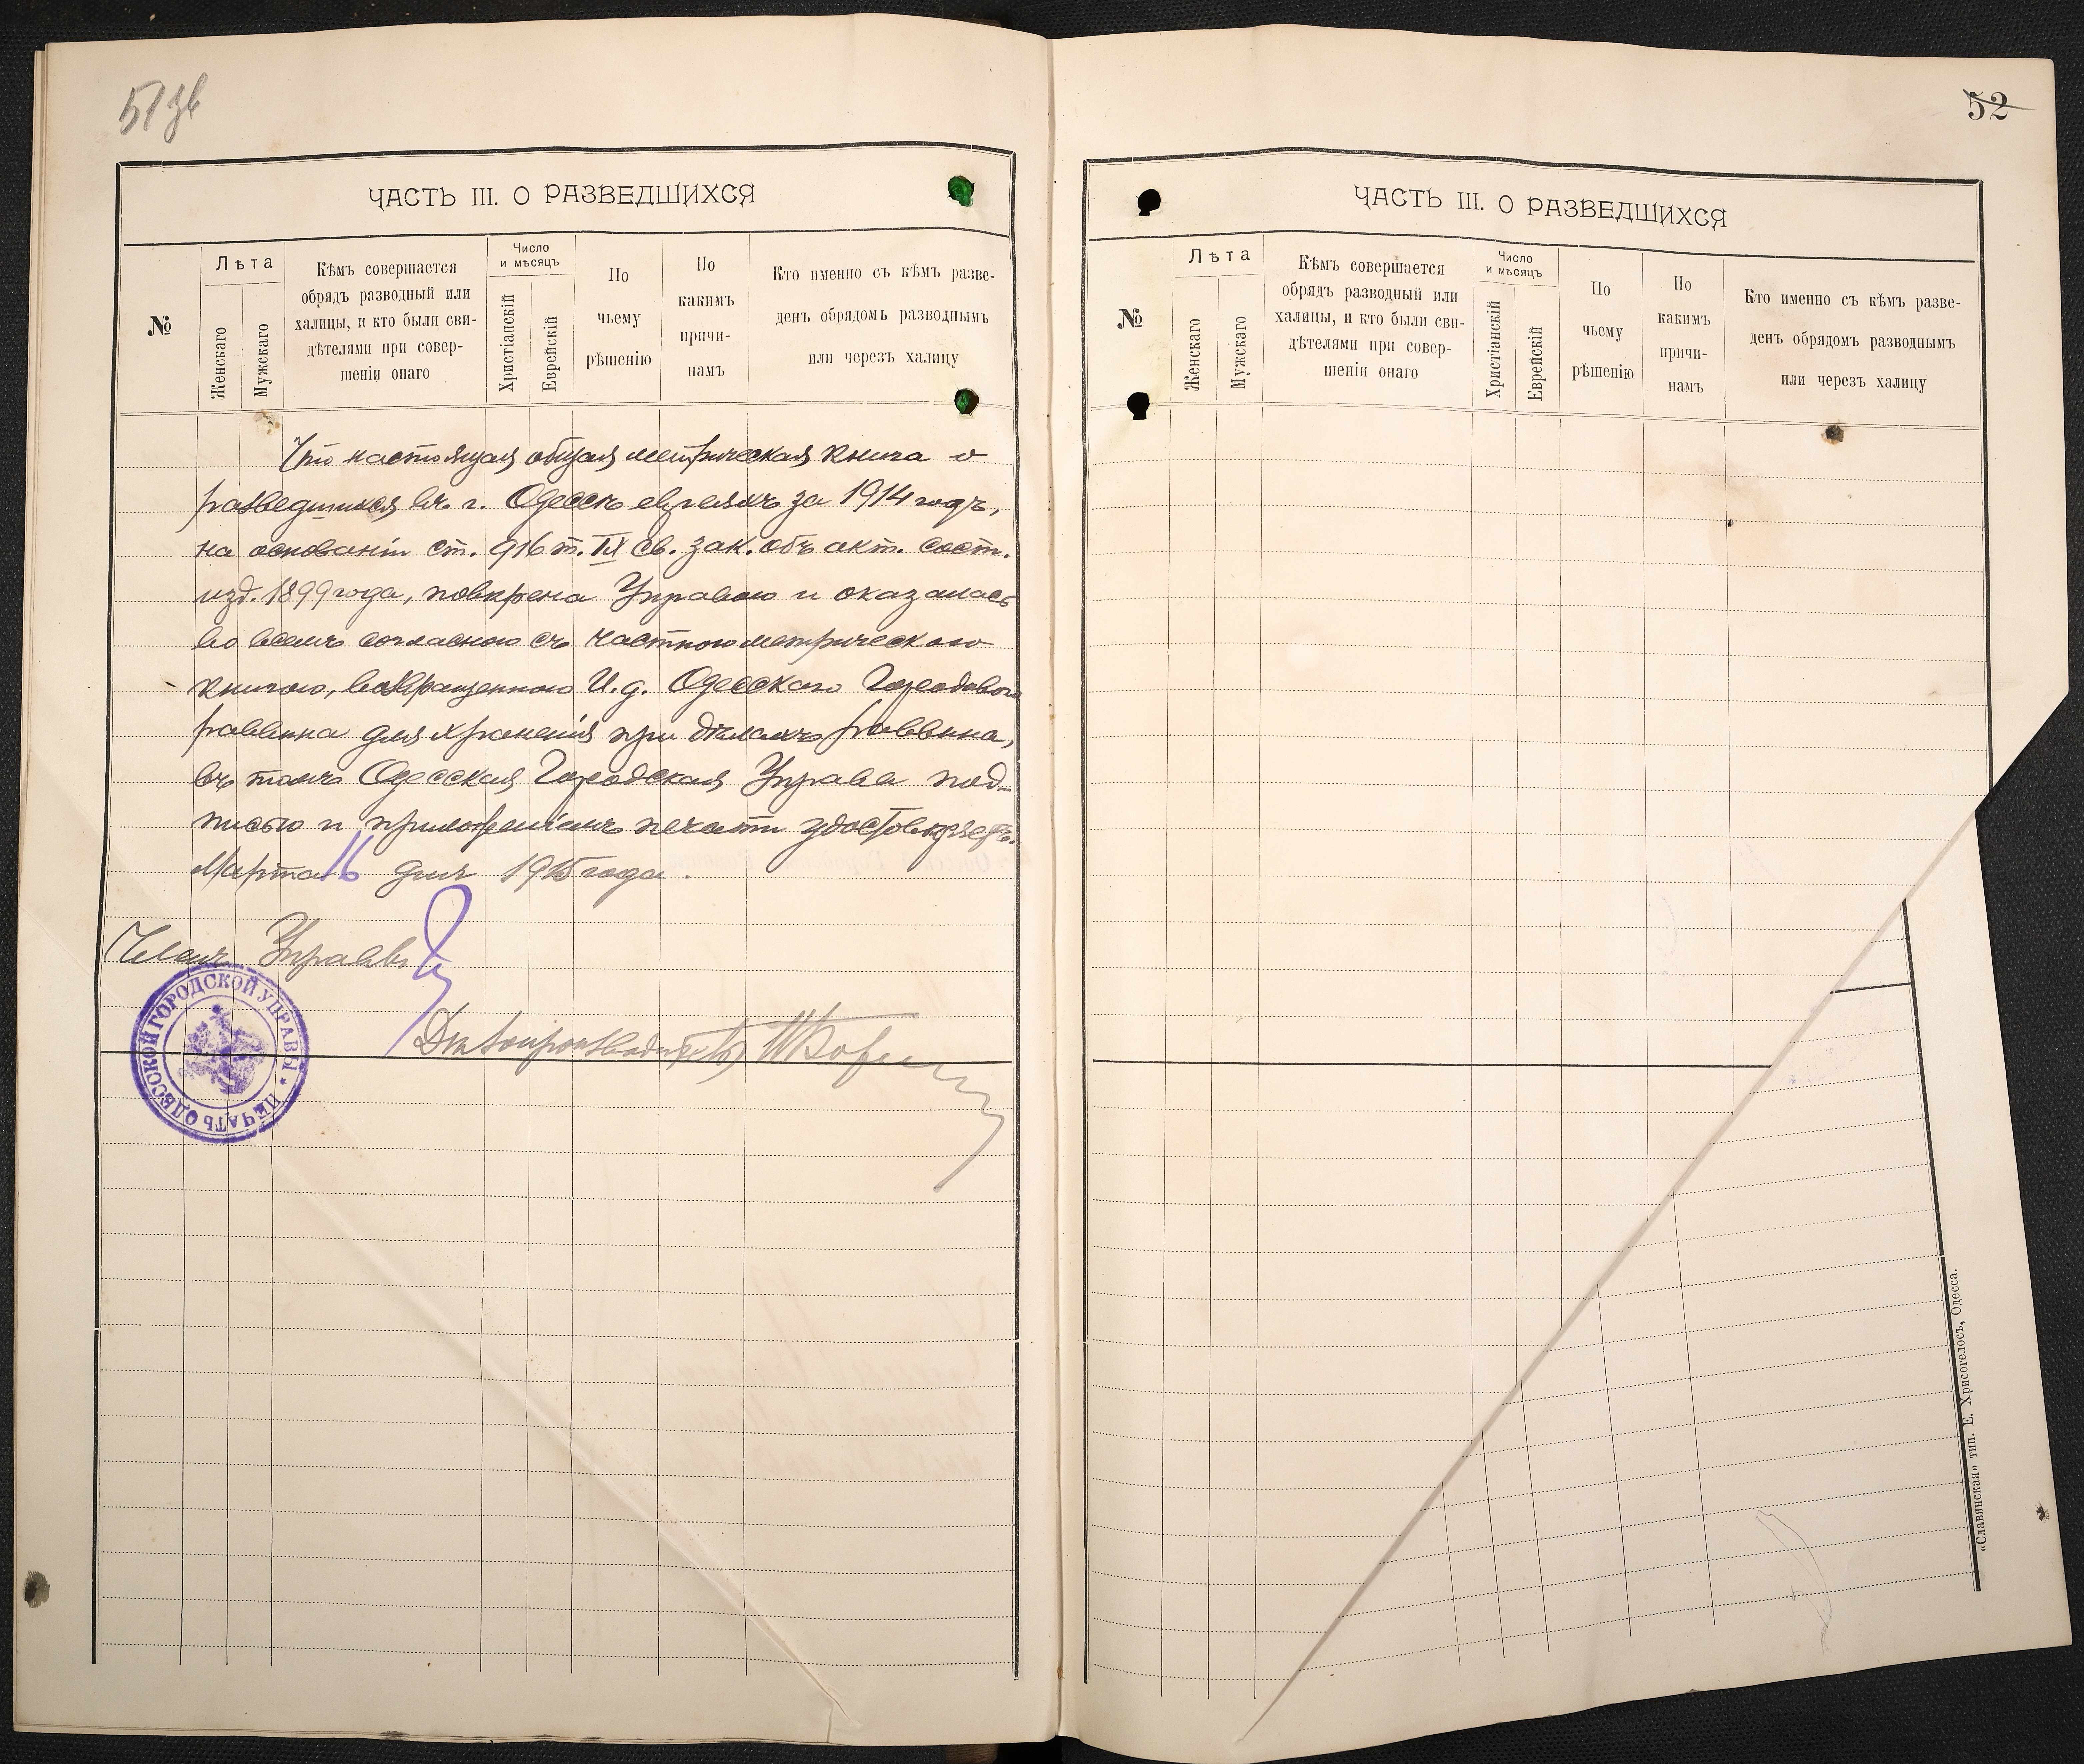 51 зв
ЧАСТЬ III. О РАЗВЕДШИХСЯ
№
Лѣта
Женскаго
Мужскаго
Кѣмъ совершается
обрядъ разводный или
халицы, и кто были сви-
дѣтелями при совер-
шеніи онаго
Число
и мѣсяцъ
Христіанскій
Еврейскій
По
чьему
рѣшенію
По
какимъ
причи-
памъ
Кто именно съ кѣмъ разве-
денъ обрядомъ разводнымъ
или черезъ халицу
Что настоящая общая метрическая книга о
разведшихся въ г. Одессѣ евреяхъ за 1914 годъ,
на основаніи ст. 916 т. IX св. зак. объ акт. сост.
изд. 1899 года, повѣрена Управою и оказалась
во всемъ согласною съ частною метрическою
книгою, возвращенною И. д. Одесскаго Городового
раввина для храненія при дѣлахъ раввина,
въ томъ Одесская Городская Управа под-
писью и приложеніемъ печати удостовѣряетъ.
Марта 16 дня 1915 года.
Членъ Управы
Дѣлопроизводитель
ПЕЧАТЬ ОДЕССКОЙ ГОРОДСКОЙ УПРАВЫ
52
ЧАСТЬ III. О РАЗВЕДШИХСЯ
№
Лѣта
Женскаго
Мужскаго
Кѣмъ совершается
обрядъ разводный или
халицы, и кто были сви-
дѣтелями при совер-
шеніи онаго
Число
и мѣсяцъ
Христіанскій
Еврейскій
По
чьему
рѣшенію
По
какимъ
причи-
памъ
Кто именно съ кѣмъ разве-
денъ обрядомъ разводнымъ
или черезъ халицу
«Славянская» тип. Е. Хрисогелосъ, Одесса.